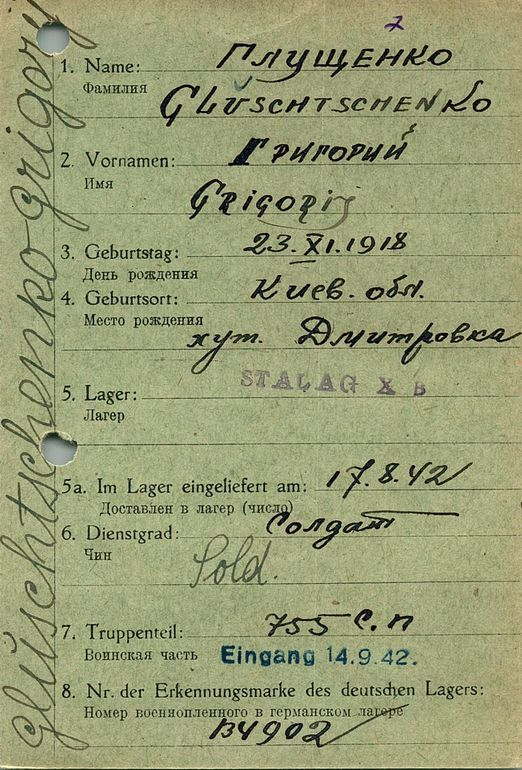 1. Name: Глущенко
Фамилия
Glŭschtschenko
2. Vornamen: Григорий
Имя
Grigorij
3. Geburtstag: 23.XI.1918
День рождения
4. Geburtsort: Киев. обл.
Место рождения
хут. Дмитровка
5. Lager: STALAG X B
Лагер
5a. Im Lager eingeliefert am: 17.8.42
Доставлен в лагер (число)
6. Dienstgrad: Солдат
Чин
Sold.
7. Truppenteil: 755 с.п
Воинская часть Eingang 14.9.42.
8. Nr. der Erkennungsmarke des deutschen Lagers:
Номер военнопленного в германском лагере
134902
glŭschtschenko grigory